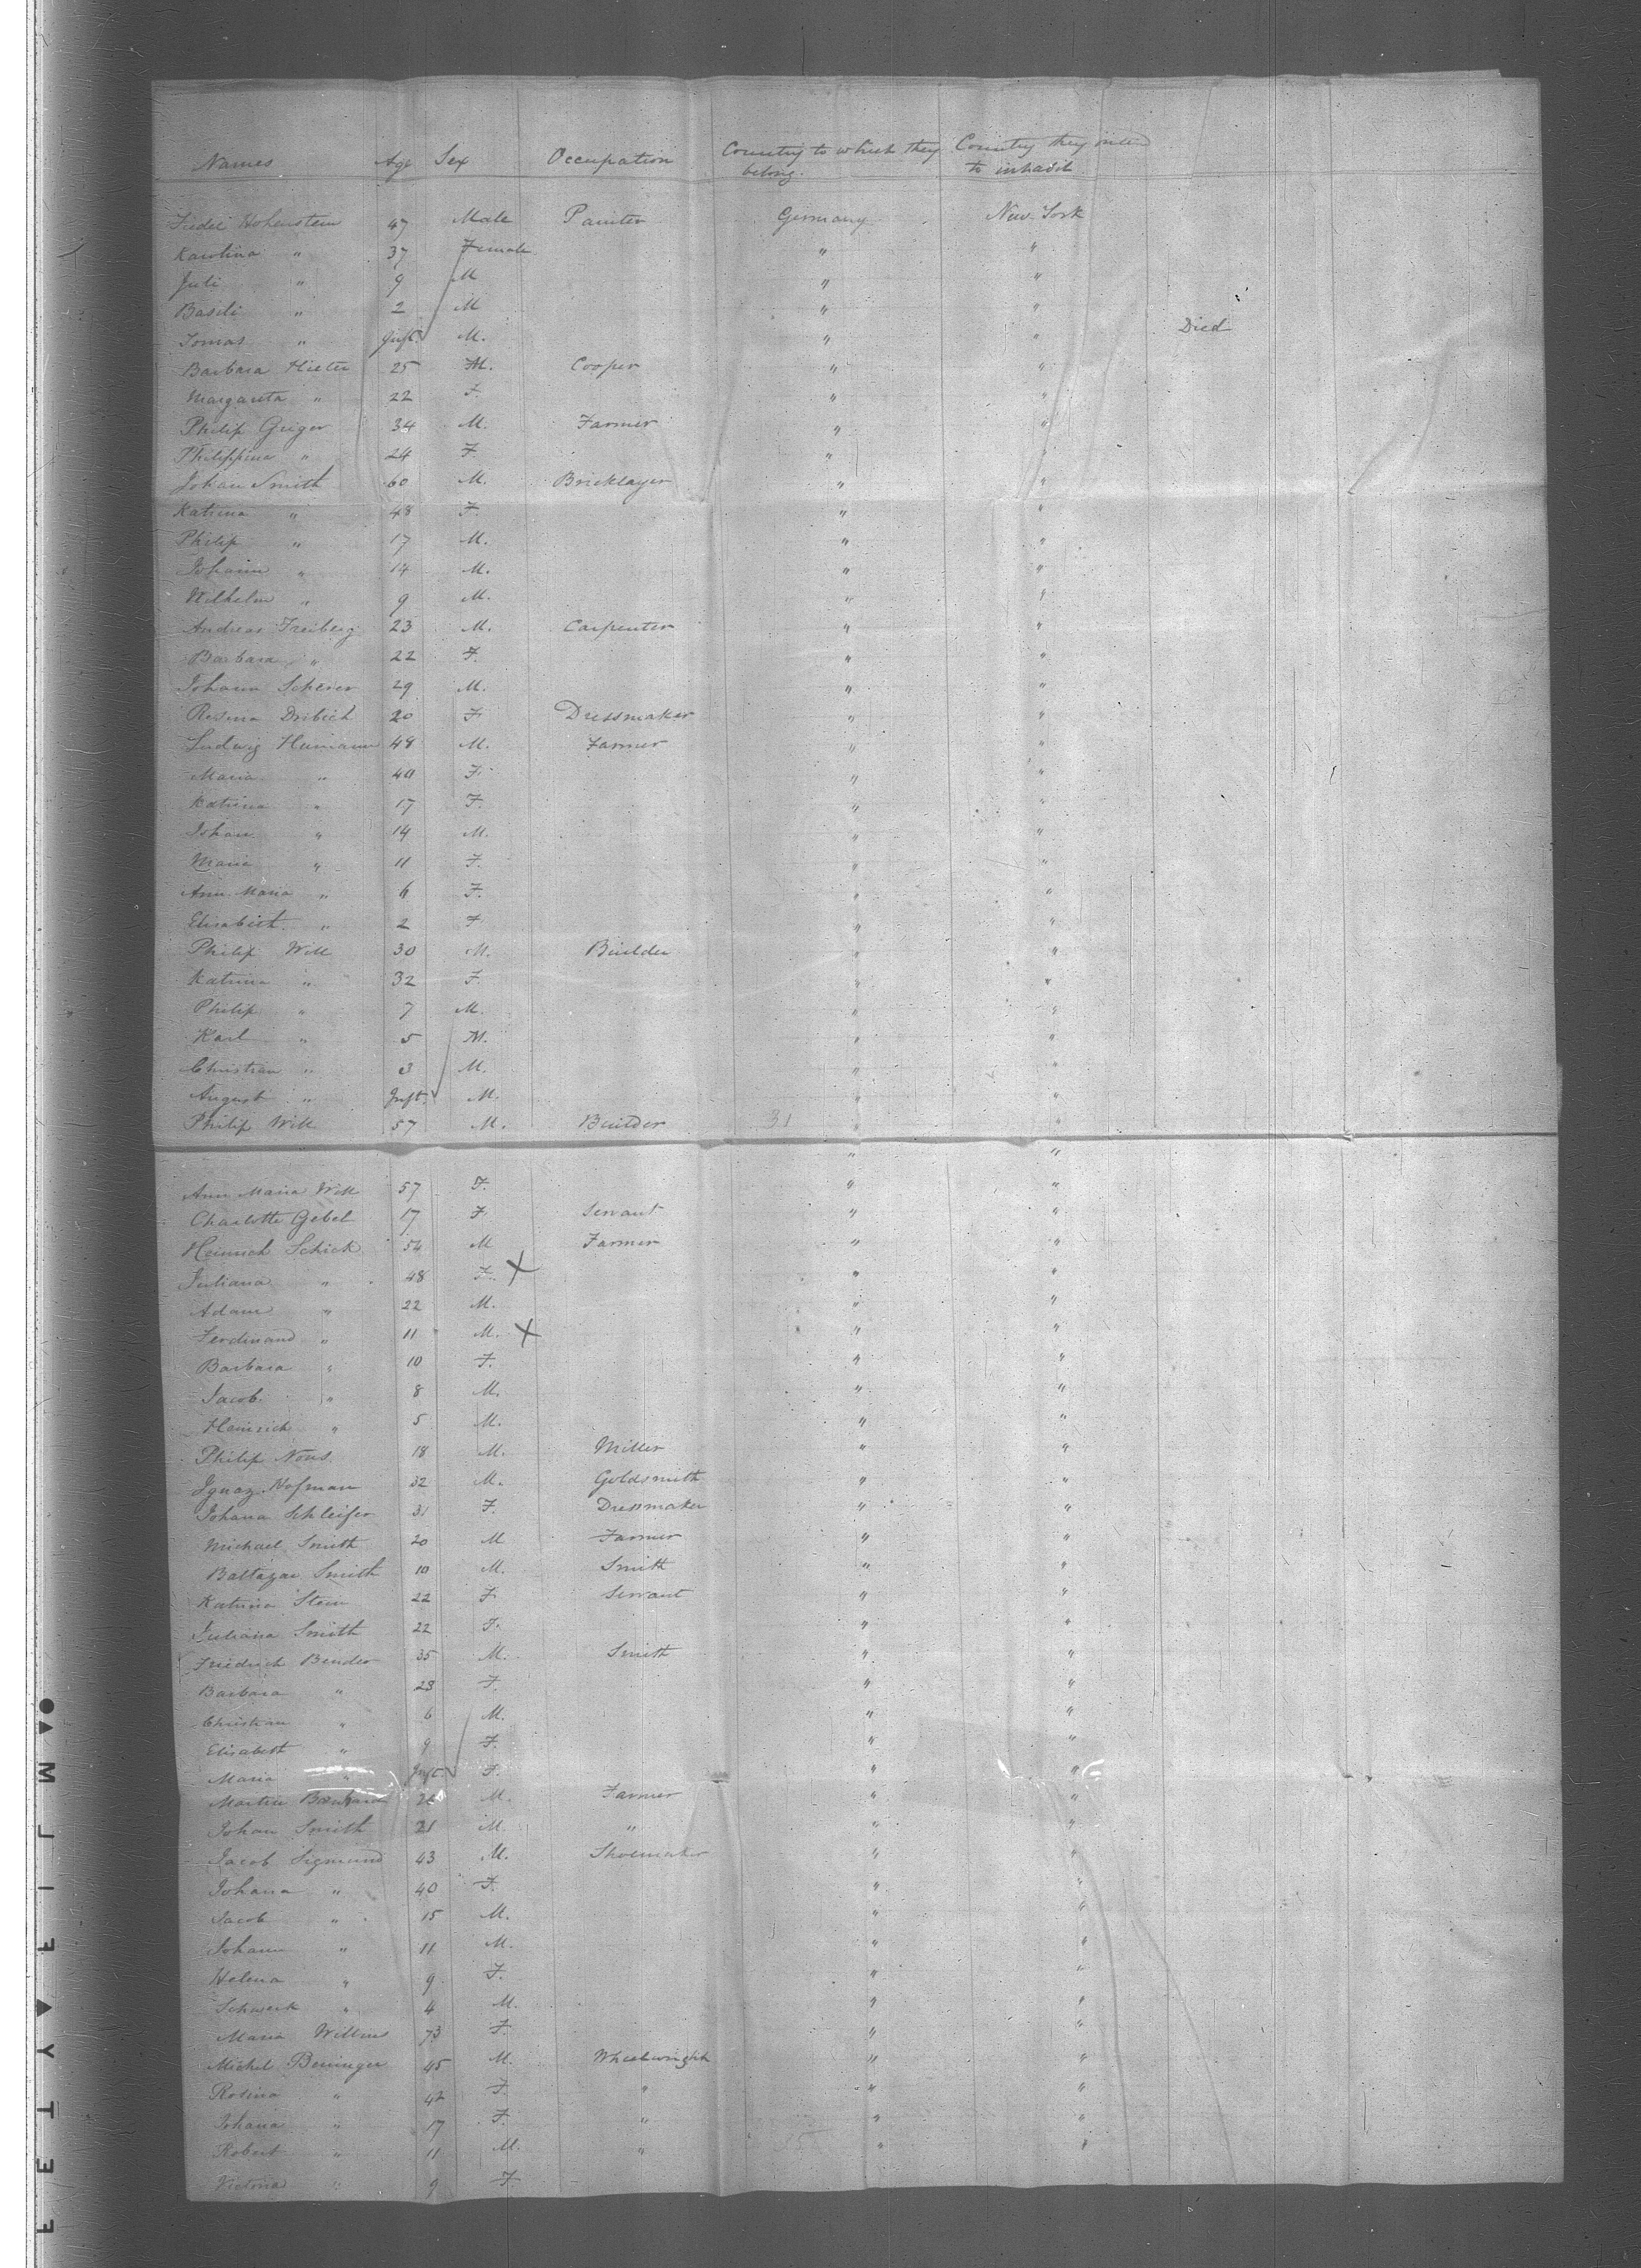 Names Age Sex Occupation Country to which they belong. Country they intend to inhabit
Fidel Hohenstein 47 Male Painter Germany New York
Karolina " 37 Female " "
Juli " 9 M " "
Basili " 2 M " "
Tomas " Inft. M. " " Died
Barbara 25 M. Cooper " "
Margareta " 22 F. " "
Philip Geiger 34 M. Farmer " "
Philippina " 24 F. " "
Johan Smith 60 M. Bricklayer " "
Katrina " 48 F. " "
Philip " 17 M. " "
Johann " 14 M. " "
Wilhelm " 9 M. " "
Andreas Freiberg 23 M. Carpenter " "
Barbara " 22 F. " "
Johann Scherer 29 M. " "
Rosina 20 F. Dressmaker " "
Ludwig Heimann 48 M. Farmer " "
Maria " 40 F. " "
Katrina " 17 F. " "
Johan " 14 M. " "
Maria " 11 F. " "
Ann Maria " 6 F. " "
Elisabeth " 2 F " "
Philip Will 30 M. Builder " "
Katrina " 32 F. " "
Philip " 7 M. " "
Karl " 5 M. " "
Christian " 3 M. " "
August " Inft. M. " "
Philip Will 57 M. Builder 31 " "
" "
Ann Maria Will 57 F. " "
Charlotte Gebel 17 F. Servant " "
Heinrich Schick 54 M Farmer " "
Juliana " 48 F. X " "
Adam " 22 M. " "
Ferdinand " 11 M. X " "
Barbara " 10 F. " "
Jacob " 8 M. " "
Heinrich " 5 M. " "
Philip Nons 18 M. Miller " "
Ignaz Hofman 32 M. Goldsmith " "
Johana Schleifer 31 F. Dressmaker " "
Michael Smith 20 M Farmer " "
Baltazar Smith 10 M. Smith " "
Katrina Stein 22 F. Servant " "
Juliana Smith 22 F. " "
Friedrich Bender 35 M. Smith " "
Barbara " 23 F. " "
Christian " 6 M. " "
Elisabeth " 9 F. " "
Maria " Inft. F. " "
Martin M. Farmer " "
Johan Smith 21 M. " " "
Jacob Sigmund 43 M. Shoemaker " "
Johana " 40 F. " "
Jacob " 15 M. " "
Johann " 11 M. " "
Helena " 9 F. " "
" 4 M. " "
Maria 73 F. " "
Michel Beninger 45 M. Wheelwright " "
Rosina " 42 F. " " "
Johana " 17 F. " " "
Robert " 11 M. " " "
Victoria " 9 F